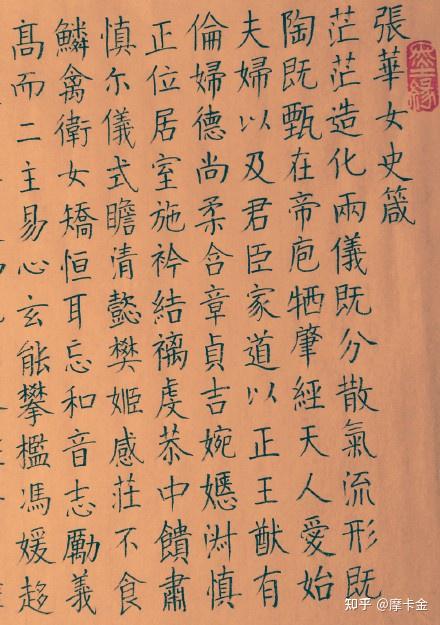 張華女史箴
茫茫造化兩儀既分散氣流形既
陶既甄在帝庖牺肇經天人愛始
夫婦以及君臣家道以正王猷有
倫婦德尚柔含章貞吉婉嫕淑慎
正位居室施衿結褵虔恭中饋肅
慎尔儀式瞻清懿樊姬感莊不食
鱗禽衛女矯恒耳忘和音志勵義
髙而二主易心玄能攀檻馮媛趍
知乎 @摩卡金